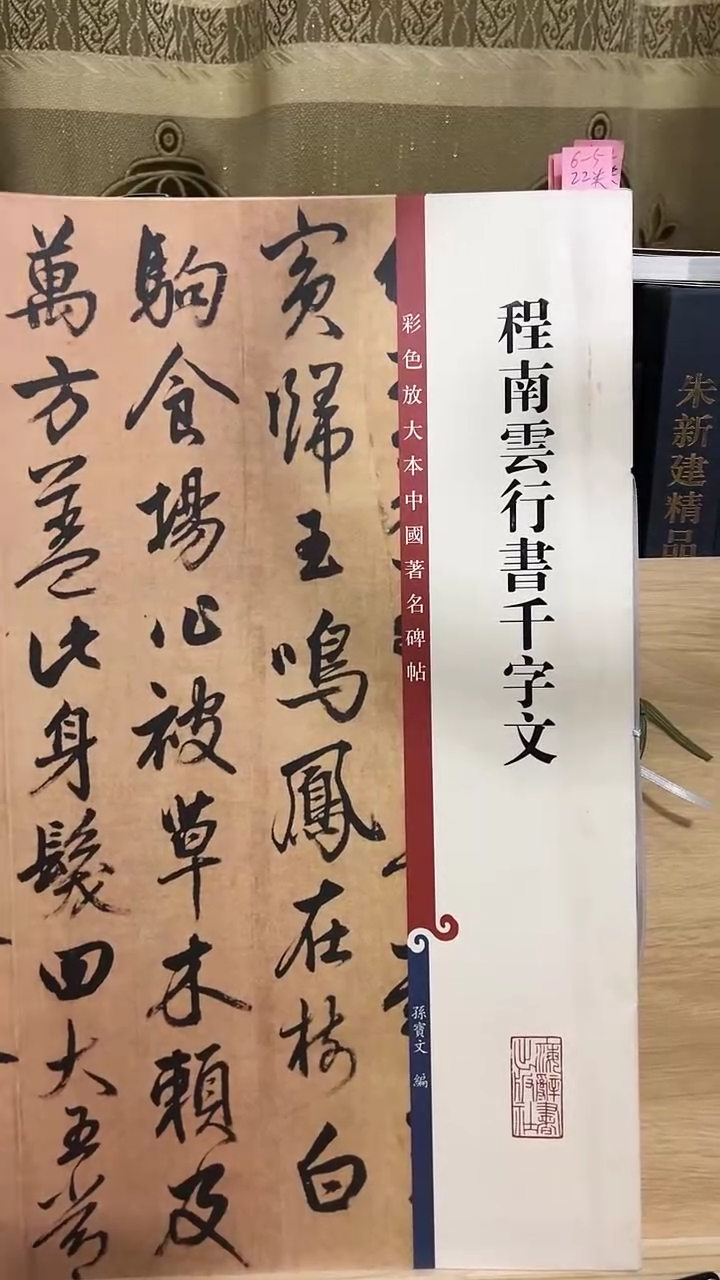 程南雲行書千字文
彩色放大本中國著名碑帖
孫寶文 編
賓歸王鳴鳳在樹白
駒食場化被草木賴及
萬方蓋此身髮四大五常
海辭書出版社
朱新建精品
6-5
22类